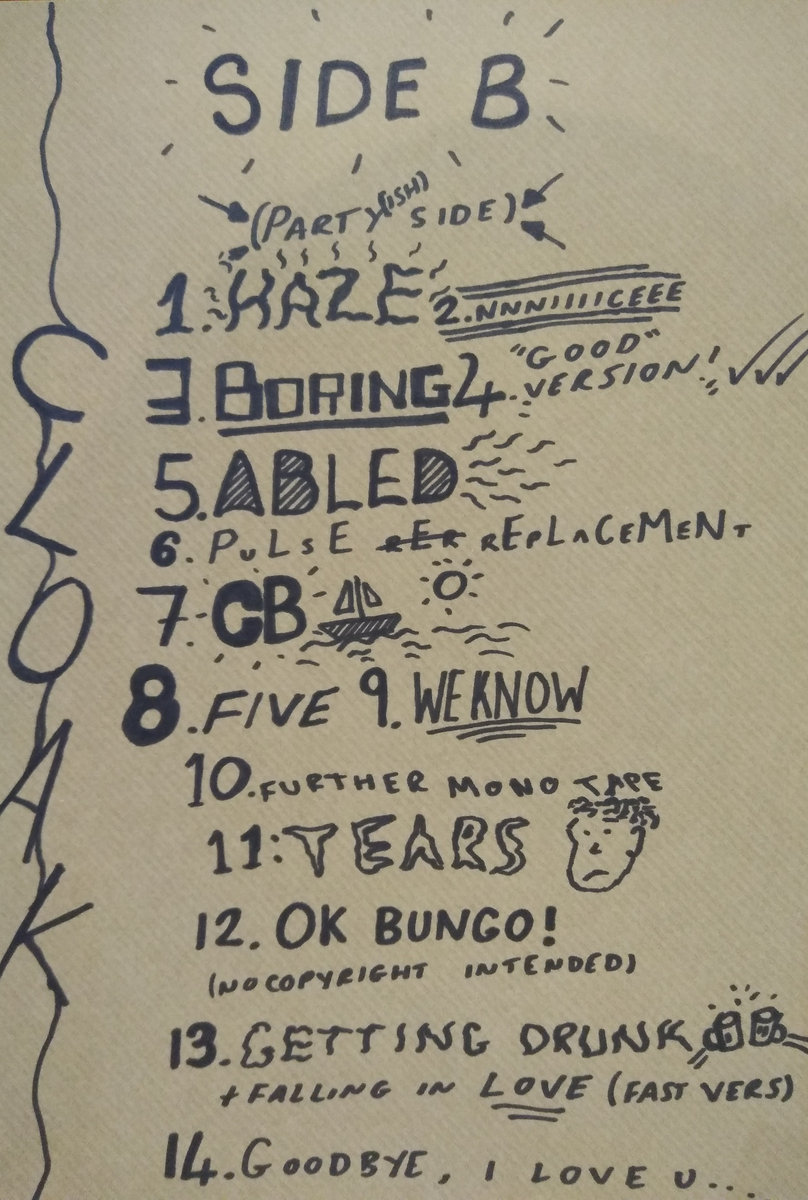 SIDE B
(PARTY(ISH) SIDE)
1. HAZE 2. NNNIIIICEEE
3. BORING 4. "GOOD" VERSION!
5. ABLED
6. PULSE RER REPLACEMENT
7. CB
8. FIVE 9. WE KNOW
10. FURTHER MONO TAPE
11: TEARS
12. OK BUNGO!
(NO COPYRIGHT INTENDED)
13. GETTING DRUNK
+ FALLING IN LOVE (FAST VERS)
14. GOODBYE, I LOVE U...
CLOAK